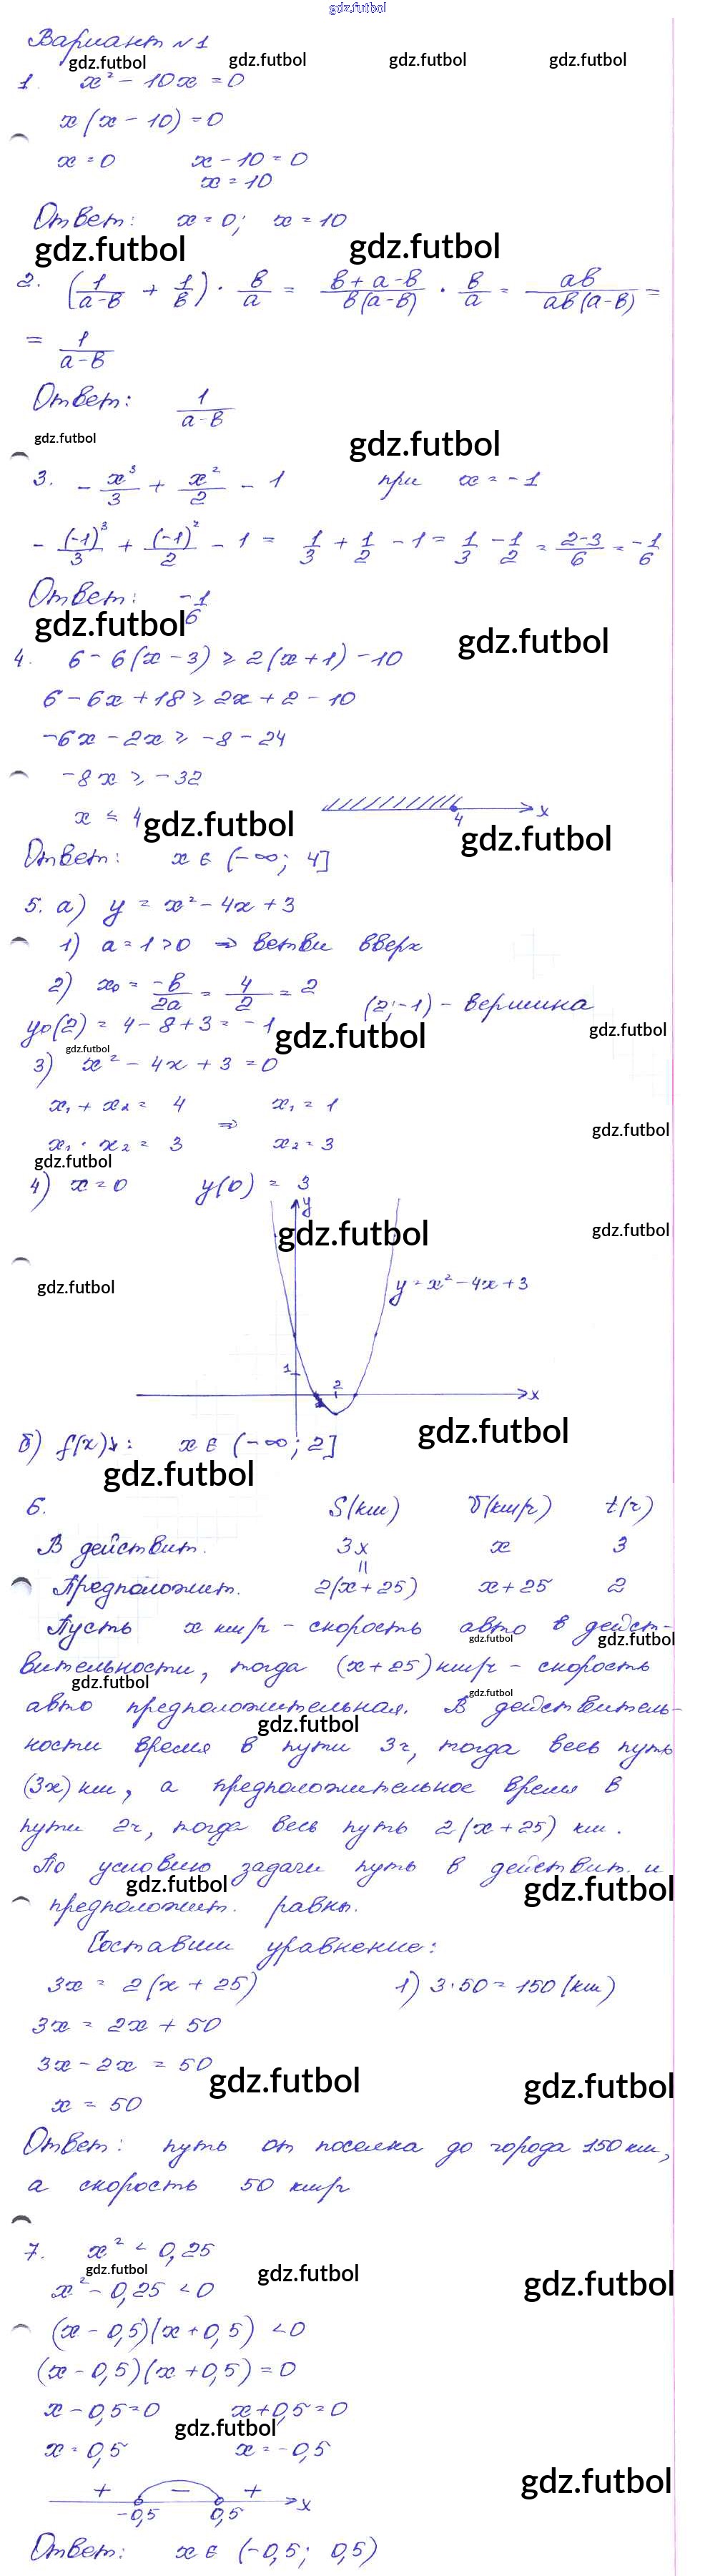 gdz.futbol
Вариант №1
gdz.futbol gdz.futbol gdz.futbol gdz.futbol
1. x² - 10x = 0
x(x - 10) = 0
x = 0 x - 10 = 0
x = 10
Ответ: x = 0; x = 10
gdz.futbol gdz.futbol
2. (1/(a-в) + 1/в) · в/a = (в + a - в)/(в(a-в)) · в/a = aв/(aв(a-в)) =
= 1/(a-в)
Ответ: 1/(a-в)
gdz.futbol gdz.futbol
3. -x³/3 + x²/2 - 1 при x = -1
-(-1)³/3 + (-1)²/2 - 1 = 1/3 + 1/2 - 1 = 1/3 - 1/2 = (2-3)/6 = -1/6
Ответ: -1/6
gdz.futbol gdz.futbol
4. 6 - 6(x - 3) ≥ 2(x + 1) - 10
6 - 6x + 18 ≥ 2x + 2 - 10
-6x - 2x ≥ -8 - 24
-8x ≥ -32
x ≤ 4 4 x
gdz.futbol gdz.futbol
Ответ: x ∈ (-∞; 4]
5. а) y = x² - 4x + 3
1) a = 1 > 0 ⇒ ветви вверх
2) x₀ = -в/2a = 4/2 = 2 (2; -1) - вершина
y₀(2) = 4 - 8 + 3 = -1
gdz.futbol gdz.futbol
gdz.futbol
3) x² - 4x + 3 = 0
x₁ + x₂ = 4 x₁ = 1
⇒
x₁ · x₂ = 3 x₂ = 3
gdz.futbol
gdz.futbol
4) x = 0 y(0) = 3
y
gdz.futbol gdz.futbol
gdz.futbol
y = x² - 4x + 3
1 2 x
gdz.futbol
б) f(x)↓: x ∈ (-∞; 2]
gdz.futbol
6. S(км) v(км/ч) t(ч)
В действит. 3x x 3
=
Предположит. 2(x + 25) x + 25 2
Пусть x км/ч - скорость авто в дейст-
gdz.futbol gdz.futbol
вительности, тогда (x + 25) км/ч - скорость
gdz.futbol gdz.futbol
авто предположительная. В действитель-
gdz.futbol
ности время в пути 3ч, тогда весь путь
(3x) км, а предположительное время в
пути 2ч, тогда весь путь 2(x + 25) км.
По условию задачи путь в действит. и
gdz.futbol gdz.futbol
предположит. равны.
Составим уравнение:
3x = 2(x + 25) 1) 3·50 = 150 (км)
3x = 2x + 50
3x - 2x = 50
gdz.futbol gdz.futbol
x = 50
Ответ: путь от поселка до города 150 км,
а скорость 50 км/ч
7. x² < 0,25
gdz.futbol gdz.futbol gdz.futbol
x² - 0,25 < 0
(x - 0,5)(x + 0,5) < 0
(x - 0,5)(x + 0,5) = 0
x - 0,5 = 0 x + 0,5 = 0
gdz.futbol
x = 0,5 x = -0,5
gdz.futbol
+ - +
-0,5 0,5 x
Ответ: x ∈ (-0,5; 0,5)